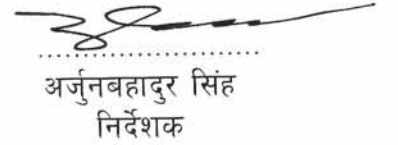 अर्जुनबहादुर सिंह
निर्देशक